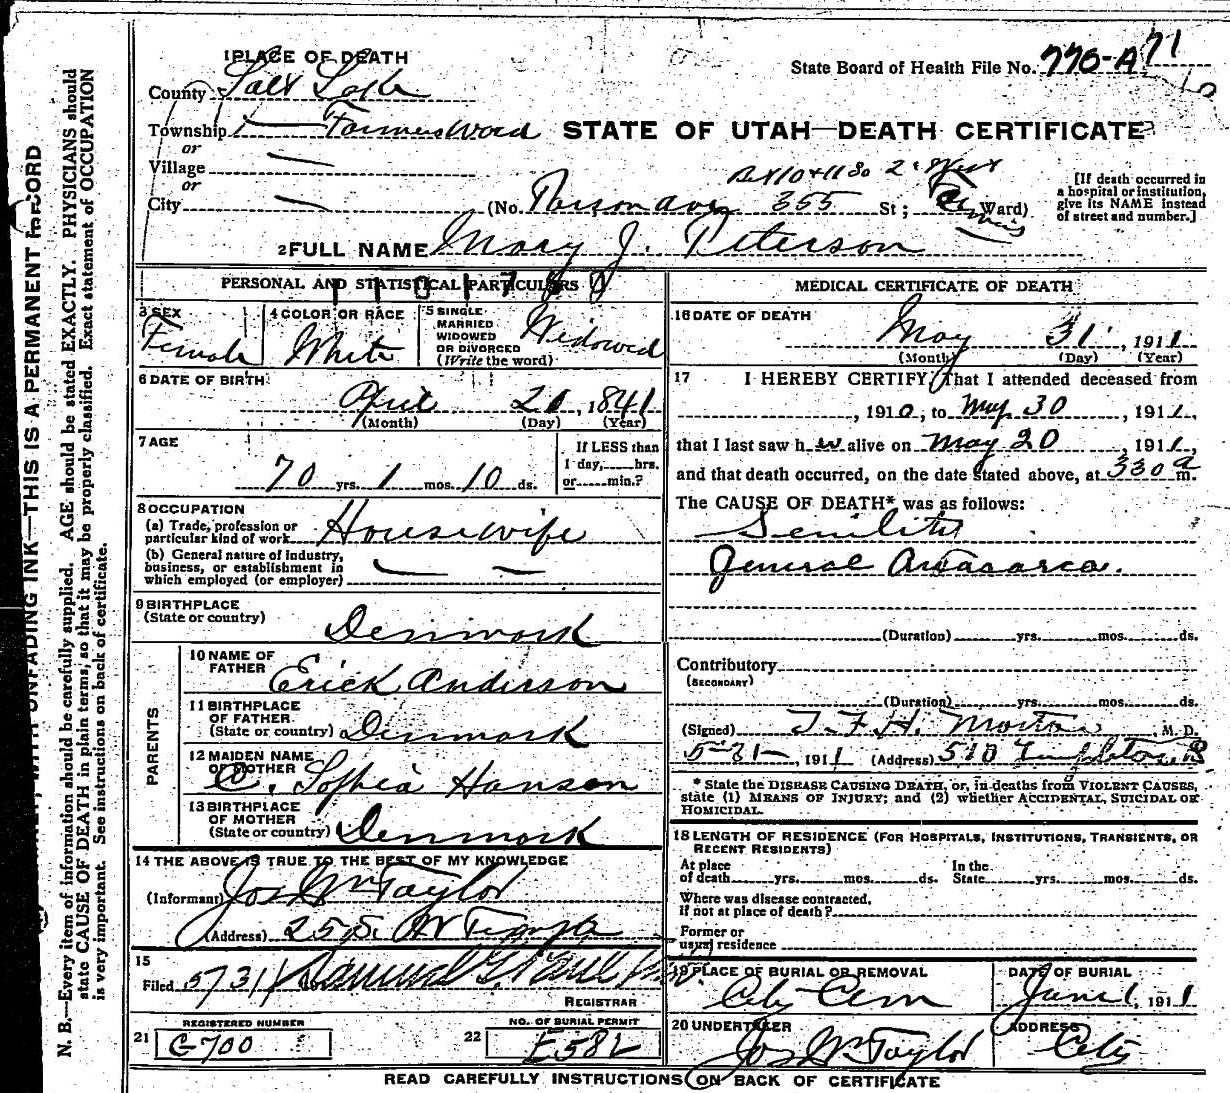 1 PLACE OF DEATH
State Board of Health File No. 770-A 71
County Salt Lake
Township Farmers Ward
STATE OF UTAH—DEATH CERTIFICATE
or
Village
or
City
(No. 355 St; Ward)
[If death occurred in
a hospital or institution,
give its NAME instead
of street and number.]
2 FULL NAME Mary J. Peterson
PERSONAL AND STATISTICAL PARTICULARS
3 SEX Female
4 COLOR OR RACE White
5 SINGLE
MARRIED
WIDOWED
OR DIVORCED
(Write the word) Widowed
6 DATE OF BIRTH
April 20, 1841
(Month) (Day) (Year)
7 AGE
70 yrs. 1 mos. 10 ds.
If LESS than
1 day, hrs.
or min.?
8 OCCUPATION
(a) Trade, profession or
particular kind of work Housewife
(b) General nature of industry,
business, or establishment in
which employed (or employer)
9 BIRTHPLACE
(State or country) Denmark
PARENTS
10 NAME OF
FATHER Erick Anderson
11 BIRTHPLACE
OF FATHER
(State or country) Denmark
12 MAIDEN NAME
OF MOTHER C. Sophia Hanson
13 BIRTHPLACE
OF MOTHER
(State or country) Denmark
14 THE ABOVE IS TRUE TO THE BEST OF MY KNOWLEDGE
(Informant) Jos Wm Taylor
(Address)
15
Filed 5/31/
REGISTRAR
21 REGISTERED NUMBER
G-700
22 NO. OF BURIAL PERMIT
E582
MEDICAL CERTIFICATE OF DEATH
16 DATE OF DEATH
May 31, 1911
(Month) (Day) (Year)
17 I HEREBY CERTIFY, That I attended deceased from
, 1910, to May 30, 1911,
that I last saw her alive on May 20, 1911,
and that death occurred, on the date stated above, at 330 a m.
The CAUSE OF DEATH* was as follows:
Senility
General Anasarca.
(Duration) yrs. mos. ds.
Contributory
(SECONDARY)
(Duration) yrs. mos. ds.
(Signed) T. F. H. Morton, M. D.
5-31-, 1911 (Address) 510 Templeton B
* State the DISEASE CAUSING DEATH, or, in deaths from VIOLENT CAUSES,
state (1) MEANS OF INJURY; and (2) whether ACCIDENTAL, SUICIDAL OR
HOMICIDAL.
18 LENGTH OF RESIDENCE (FOR HOSPITALS, INSTITUTIONS, TRANSIENTS, OR
RECENT RESIDENTS)
At place
of death yrs. mos. ds. In the
State yrs. mos. ds.
Where was disease contracted,
If not at place of death?
Former or
usual residence
19 PLACE OF BURIAL OR REMOVAL
City Cem
DATE OF BURIAL
June 1, 1911
20 UNDERTAKER
Jos Wm Taylor
ADDRESS
City
READ CAREFULLY INSTRUCTIONS ON BACK OF CERTIFICATE
UNFADING INK—THIS IS A PERMANENT RECORD
N. B.—Every item of information should be carefully supplied. AGE should be stated EXACTLY. PHYSICIANS should
state CAUSE OF DEATH in plain terms, so that it may be properly classified. Exact statement of OCCUPATION
is very important. See instructions on back of certificate.